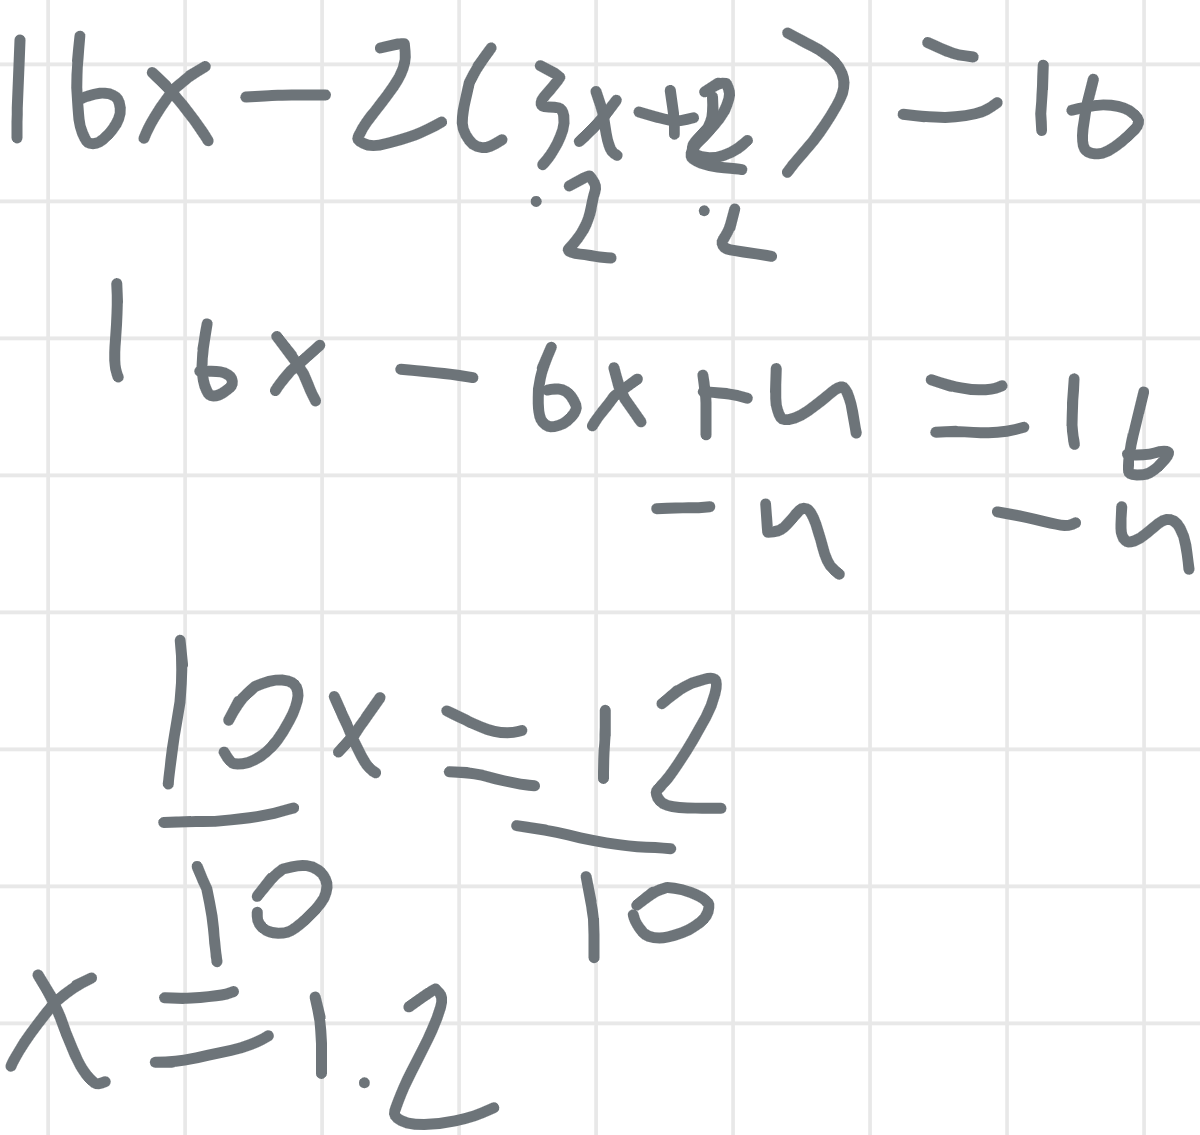 16x - 2(3x+2) = 16
·2 ·2
16x - 6x + 4 = 16
- 4 - 4
10x = 12
10 10
x = 1.2